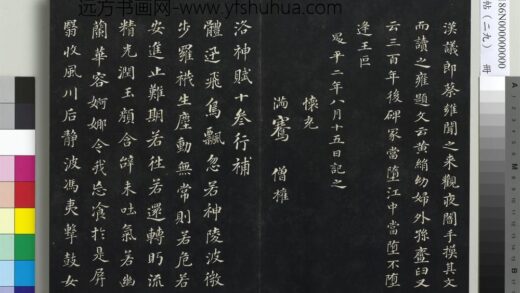 远方书画网-www.yfshuhua.com
86N000000000
帖（二九） 册
漢議郎蔡雍聞之来觀夜闇手摸其文
而讀之雍題文云黃絹幼婦外孫齏臼又
云三百年後碑冢當墮江中當墮不墮
逢王叵
昇平二年八月十五日記之
懷充
滿騫 僧權
洛神賦十叁行補
體迅飛鳧飄忽若神陵波微
步羅襪生塵動無常則若危若
安進止難期若往若還轉眄流
精光潤玉顏含辭未吐氣若幽
蘭華容婀娜令我忘飡於是屏
翳收風川后静波馮夷擊鼓女